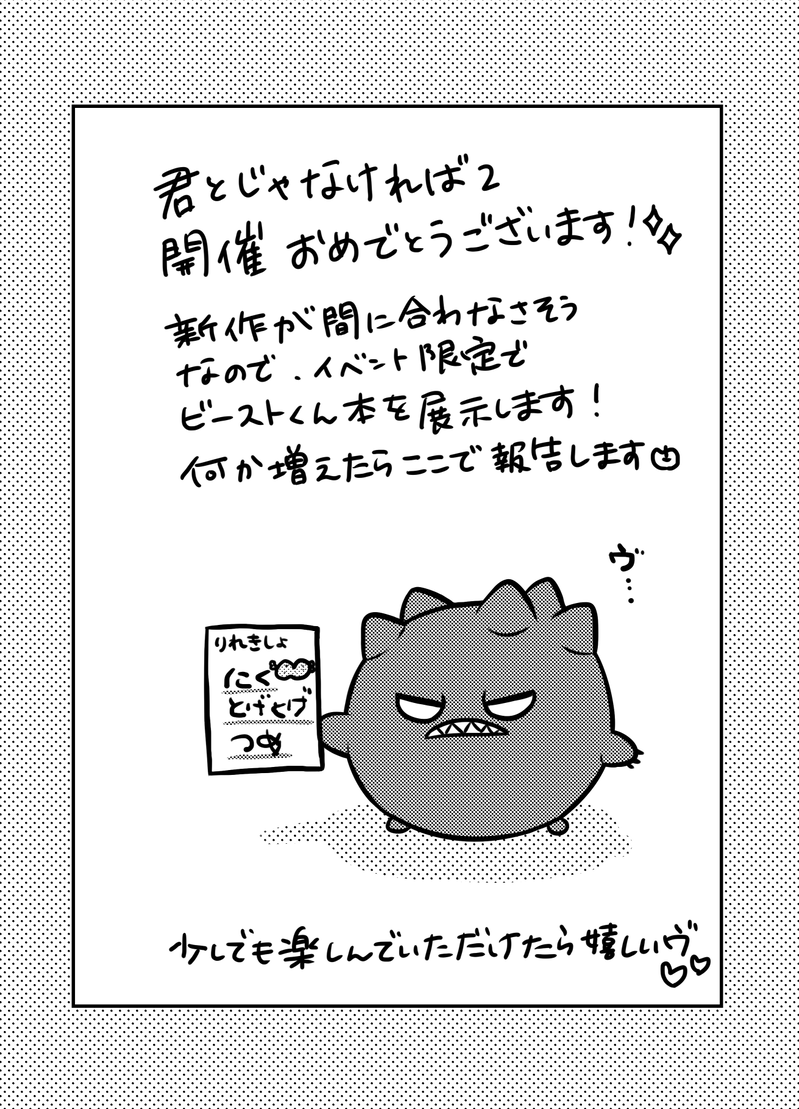 君とじゃなければ2
開催 おめでとうございます!
新作が間に合わなさそう
なので、イベント限定で
ビーストくん本を展示します!
何か増えたらここで報告します
ヴ…
りれきしょ
にく
とげとげ
つめ
少しでも楽しんでいただけたら嬉しいヴ